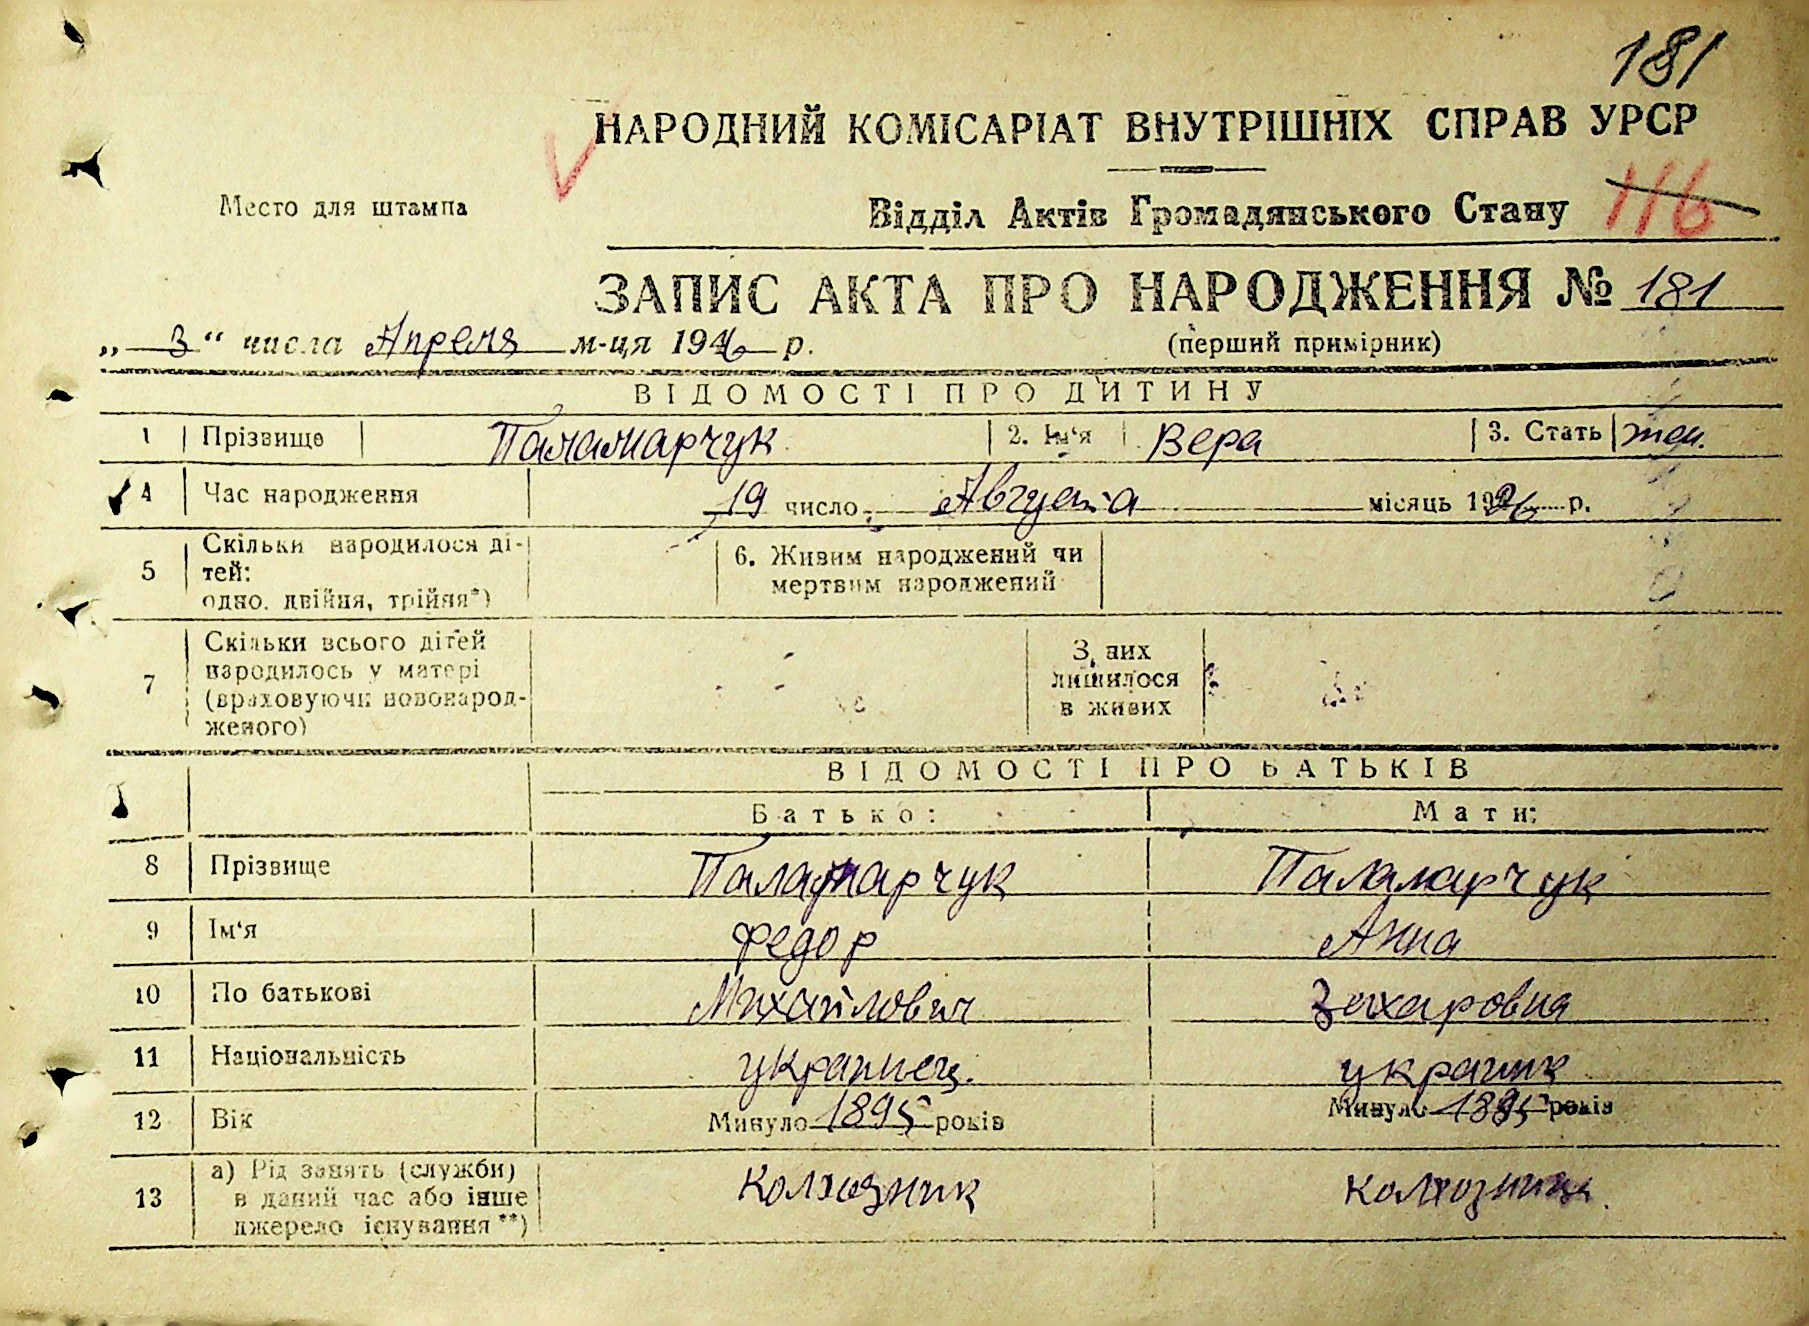 181
НАРОДНИЙ КОМІСАРІАТ ВНУТРІШНІХ СПРАВ УРСР
Место для штампа
Відділ Актів Громадянського Стану 116
ЗАПИС АКТА ПРО НАРОДЖЕННЯ № 181
„ 3 “ числа Апреля м-ця 1946 р.
(перший примірник)
ВІДОМОСТІ ПРО ДИТИНУ
1 Прізвище Паламарчук 2. Ім‘я Вера 3. Стать жен.
4 Час народження 19 число Августа місяць 1926 р.
5 Скільки народилося ді-
тей:
одно, двійня, трійня*)
6. Живим народжений чи
мертвим народжений
7 Скільки всього дітей
народилось у матері
(враховуючи новонарод-
женого)
З них
лишилося
в живих
ВІДОМОСТІ ПРО БАТЬКІВ
Батько: Мати:
8 Прізвище Паламарчук Паламарчук
9 Ім‘я Федор Анна
10 По батькові Михайлович Захаровна
11 Національність украинец.
12 Вік Минуло 1895 років Минуло 1895 років
13 а) Рід занять (служби)
в даний час або інше
джерело існування**)
Колхозник Колхозница